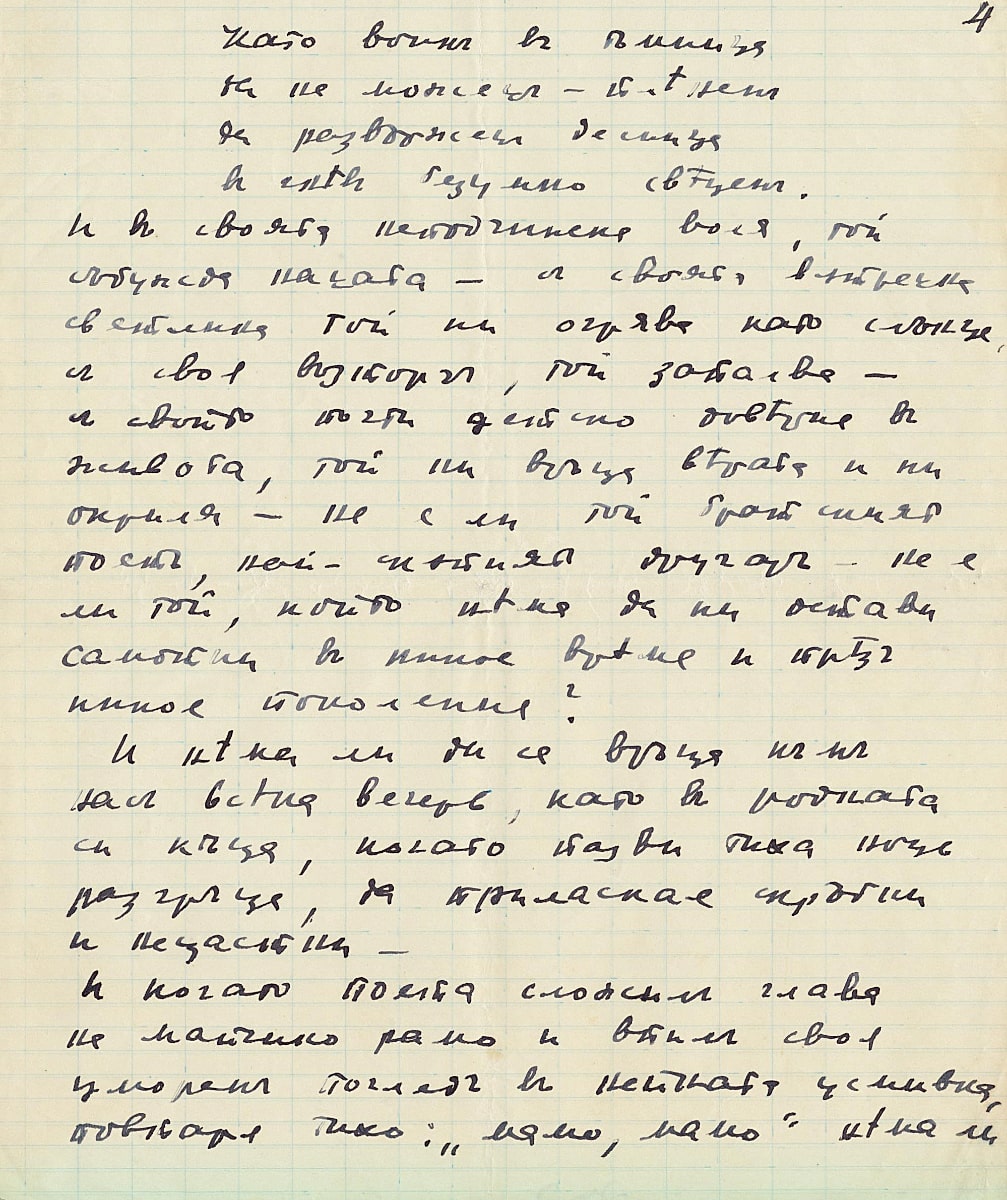 4
Като воинъ въ тъмница
да не можешъ – плѣненъ
да развържешъ десница
въ гнѣвъ безумно свѣщенъ.
И въ своята неподчинена воля, той
събужда нацата – съ своята вътрешна
светлина той ни огрява като слънце,
съ своя възторгъ, той запалва –
съ своето почти детско довѣрие въ
живота, той ни връща вѣрата и ни
окриля – не е ли той братският
поетъ, най-скѫпият другарь – не е
ли той, който нѣма да ни остави
самотни въ никое врѣме и прѣзъ
никое поколение?
И нѣма ли да се връща към
насъ всѣка вечерь, като въ родната
си къща, когато пазви тиха нощь
разгръща, да приласкае скръбни
и нещастни –
И когато поета сложилъ глава
на майчино рамо и впилъ своя
уморенъ погледъ въ нейната усмивка,
повтаря тихо: „мамо, мамо“ нѣма ли